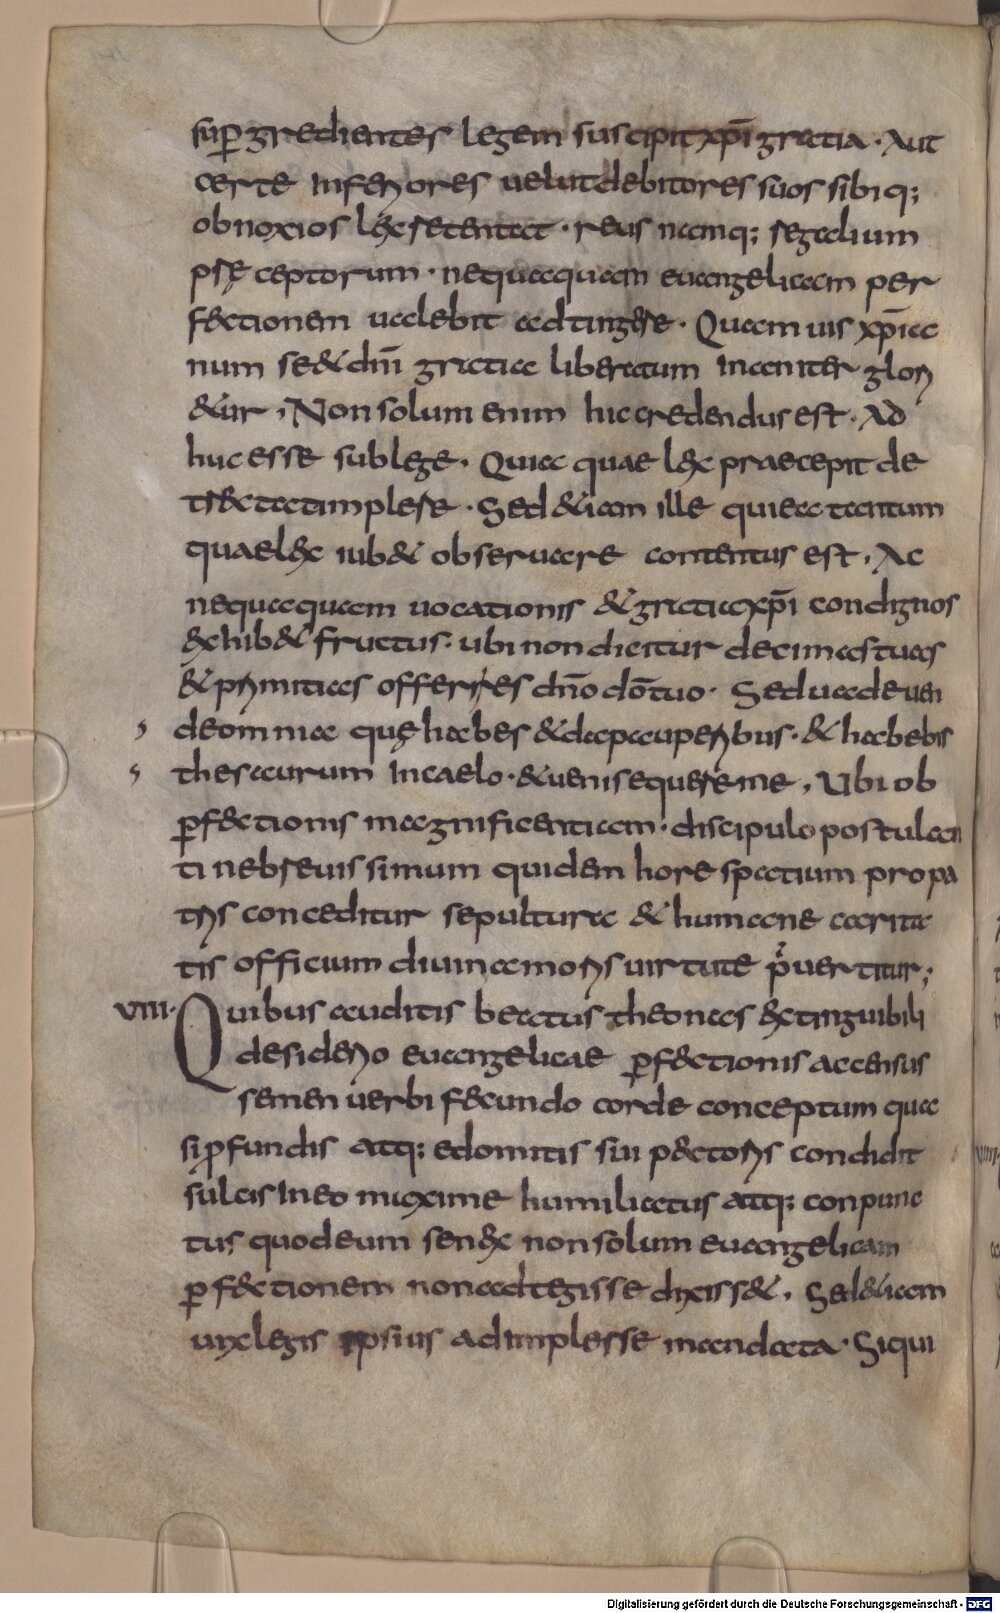 suꝑgredientes legem suscipit xp̄i gratia · Aut
certe inferiores uelut debitores suos sibiq;
obnoxios lex retentat · reus namq; se gedium
preceptorum · nequaquam euangelicam per
fectionem ualebit adtingere · Quamuis xp̄ia
num se & dn̄i gratiae liberatum inaniter glori
&ur , Non solum enim hic credendus est · Ad
huc esse sub lege · Qui ea quae lex praecepit de
trectat implere · Sed &iam ille qui ea tantum
quae lex iub& obseruare contentus est , Ac
nequaquam uocationis & gratiae xp̄i condignos
exhib& fructus · ubi non dicitur decimas tuas
& primitias offerres dn̄o dō tuo · Sed uade uen
de omnia quę habes & da pauperibus · & habebis
thesaurum in caelo · & ueni sequere me , Ubi ob
ꝑfectionis magnificentiam · discipulo postulan
ti ne breuissimum quidem hore spatium pro pa
tris conceditur sepultura & humane carita
tis officium diuini amoris uirtute p̄uertitur ;
VIII · Quibus auditis beatus theonas extinguibili
desiderio euangelicae ꝑfectionis accensus
semen uerbi fecundo corde conceptum qua
si ꝓfundis atq; edomitis sui pectoris condidit
sulcis In eo maxime humiliatus atq; conpunc
tus quod eum senex non solum euangelicam
ꝑfectionem non adtegisse dixiss& , Sed &iam
uix legis ipsius adimplesse mandata · Si qui
Digitalisierung gefördert durch die Deutsche Forschungsgemeinschaft - DFG